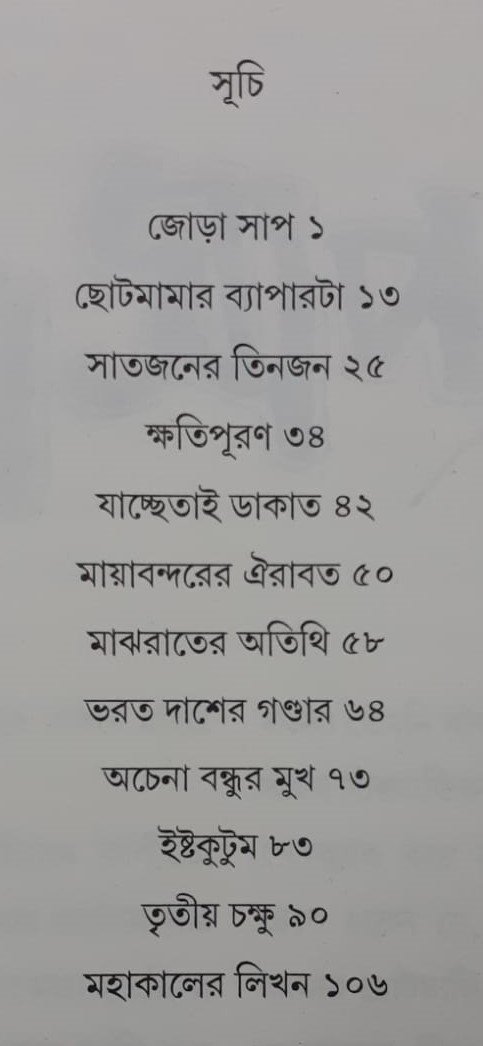 সূচি
জোড়া সাপ ১
ছোটমামার ব্যাপারটা ১৩
সাতজনের তিনজন ২৫
ক্ষতিপূরণ ৩৪
যাচ্ছেতাই ডাকাত ৪২
মায়াবন্দরের ঐরাবত ৫০
মাঝরাতের অতিথি ৫৮
ভরত দাশের গণ্ডার ৬৪
অচেনা বন্ধুর মুখ ৭৩
ইষ্টকুটুম ৮৩
তৃতীয় চক্ষু ৯০
মহাকালের লিখন ১০৬